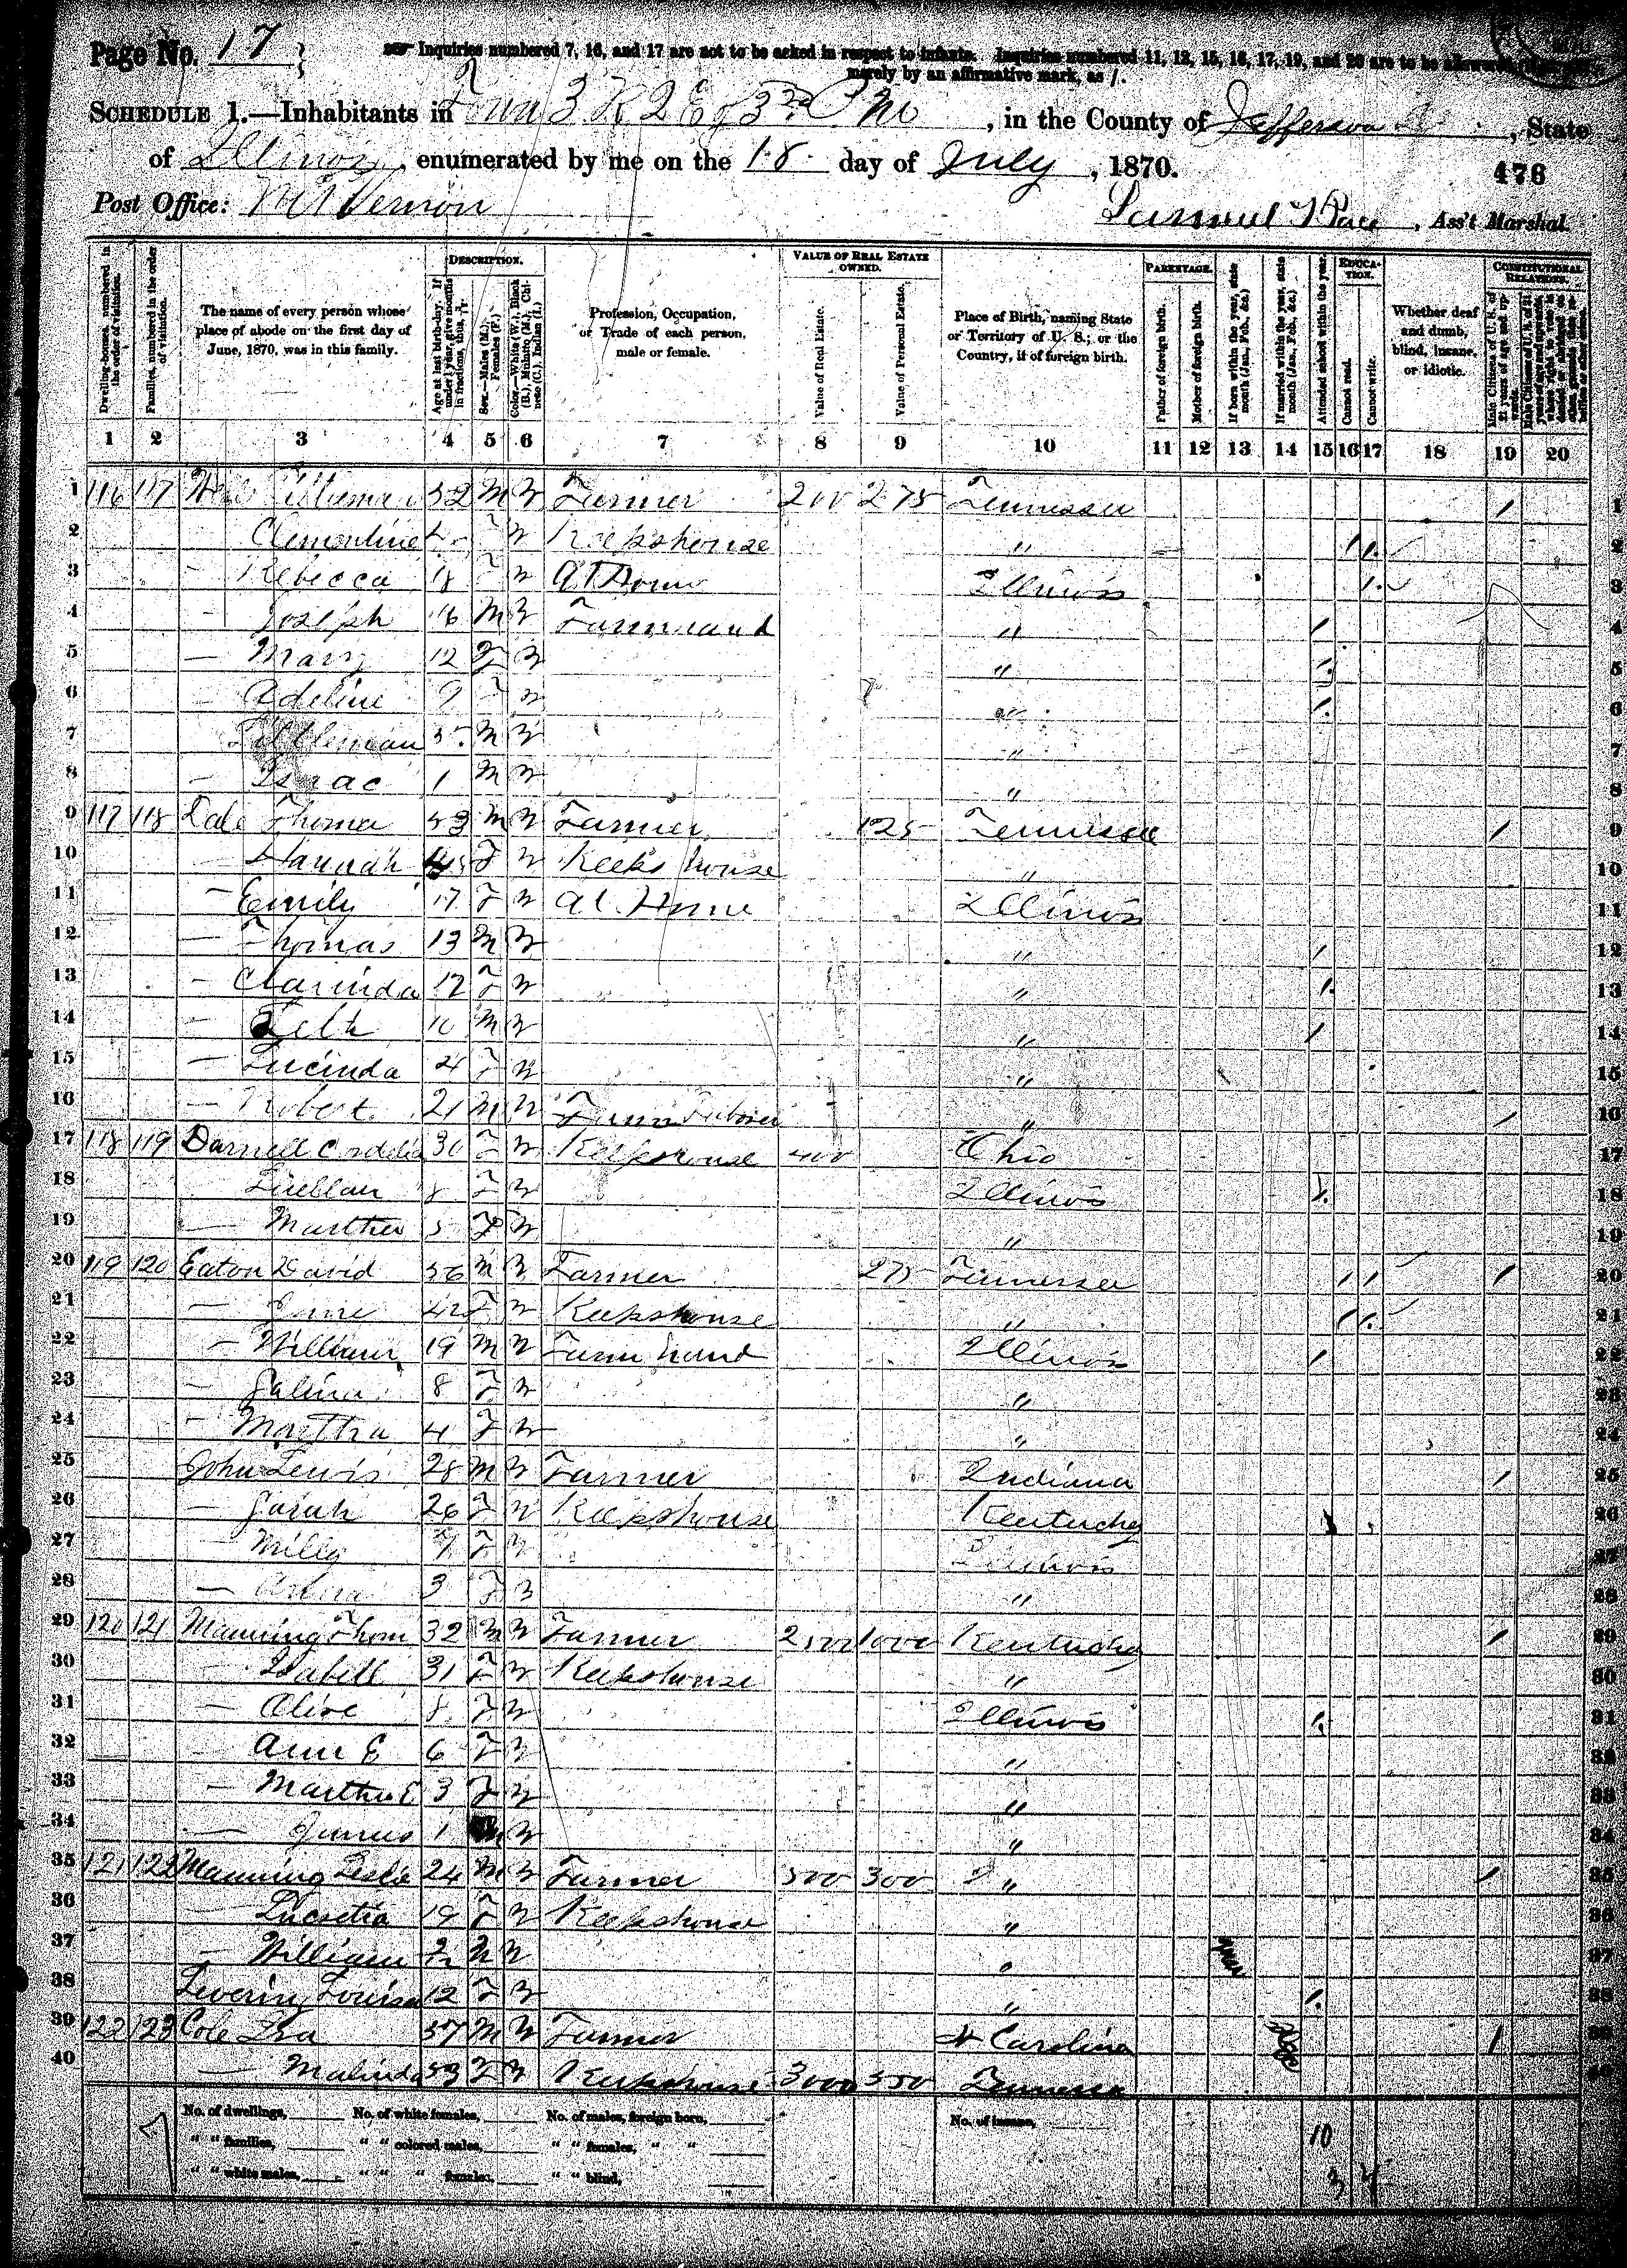 Page No. 17
Inquiries numbered 7, 16, and 17 are not to be asked in respect to infants. Inquiries numbered 11, 12, 15, 16, 17, 19, and 20 are to be answered
merely by an affirmative mark, as /.
SCHEDULE 1.—Inhabitants in Town 3 R 2 E of 3rd P M, in the County of Jefferson, State
of Illinois, enumerated by me on the 18. day of July, 1870.
476
Post Office: Mt Vernon
Samuel T Pace, Ass't Marshal.
Dwelling-houses, numbered in the order of visitation.
Families, numbered in the order of visitation.
The name of every person whose place of abode on the first day of June, 1870, was in this family.
DESCRIPTION.
Age at last birth-day. If under 1 year, give months in fractions, thus, 3/12.
Sex.—Males (M.), Females (F.)
Color.—White (W.), Black (B.), Mulatto (M.), Chinese (C.), Indian (I.)
Profession, Occupation, or Trade of each person, male or female.
VALUE OF REAL ESTATE OWNED.
Value of Real Estate.
Value of Personal Estate.
Place of Birth, naming State or Territory of U. S.; or the Country, if of foreign birth.
PARENTAGE.
Father of foreign birth.
Mother of foreign birth.
If born within the year, state month (Jan., Feb., &c.)
If married within the year, state month (Jan., Feb., &c.)
Attended school within the year.
EDUCATION.
Cannot read.
Cannot write.
Whether deaf and dumb, blind, insane, or idiotic.
CONSTITUTIONAL RELATIONS.
Male Citizens of U. S. of 21 years of age and upwards.
1 2 3 4 5 6 7 8 9 10 11 12 13 14 15 16 17 18 19 20
1 116 117 M W Farmer 200 275 Tennessee / 1
2 Clementine W Keepshouse " / / 2
3 — Rebecca 18 F W At Home Illinois / 3
4 — Joseph 16 M W Farm hand " / 4
5 — Mary 12 F W " / 5
6 — Adeline 9 F W " / 6
7 M W " 7
8 — Isaac 1 M W " 8
9 117 118 Dale Thomas M W Farmer 125 Tennessee / 9
10 — Hannah F W Keeps house " 10
11 — Emily 17 F W At Home Illinois 11
12 — Thomas 13 M W " / 12
13 — Clarinda 12 F W " / 13
14 — 10 M W " / 14
15 — Lucinda 4 F W " 15
16 — Robert 21 M W Farm Laborer " / 16
17 118 119 Darnell Cordelia 30 F W Keepshouse 400 Ohio 17
18 8 F W Illinois / 18
19 — Marther 5 F W " 19
20 119 120 Eaton David 56 M W Farmer 275 Tennessee / / / 20
21 — Jane 42 F W Keepshouse " / / 21
22 — William 19 M W Farm hand Illinois / 22
23 — Salina 8 F W " 23
24 — Martha 4 F W " 24
25 John Lewis 28 M W Farmer Indiana / 25
26 — Sarah 26 F W Keepshouse Kentucky 26
27 — Milly 7 F W Illinois 27
28 — 3 F W " 28
29 120 121 Manning Thom 32 M W Farmer 2500 1000 Kentucky / 29
30 — Isabell 31 F W Keepshouse " 30
31 — Olive 8 F W Illinois / 31
32 — Ann E 6 F W " 32
33 — Martha E 3 F W " 33
34 — James 1 M W " 34
35 121 122 Manning Leslie 24 M W Farmer 500 300 " / 35
36 — Lucretia 19 F W Keepshouse " 36
37 — William M W " 37
38 Levering Louisa 12 F W " / 38
39 122 123 Cole Ira 57 M W Farmer N Carolina / 39
40 — Malinda 53 F W Keepshouse 3000 350 Tennessee 40
No. of dwellings, No. of white females, No. of males, foreign born, No. of insane,
" " families, " " colored males, " " females, " " 10
" " white males, " " " females, " " blind, 3 4
7